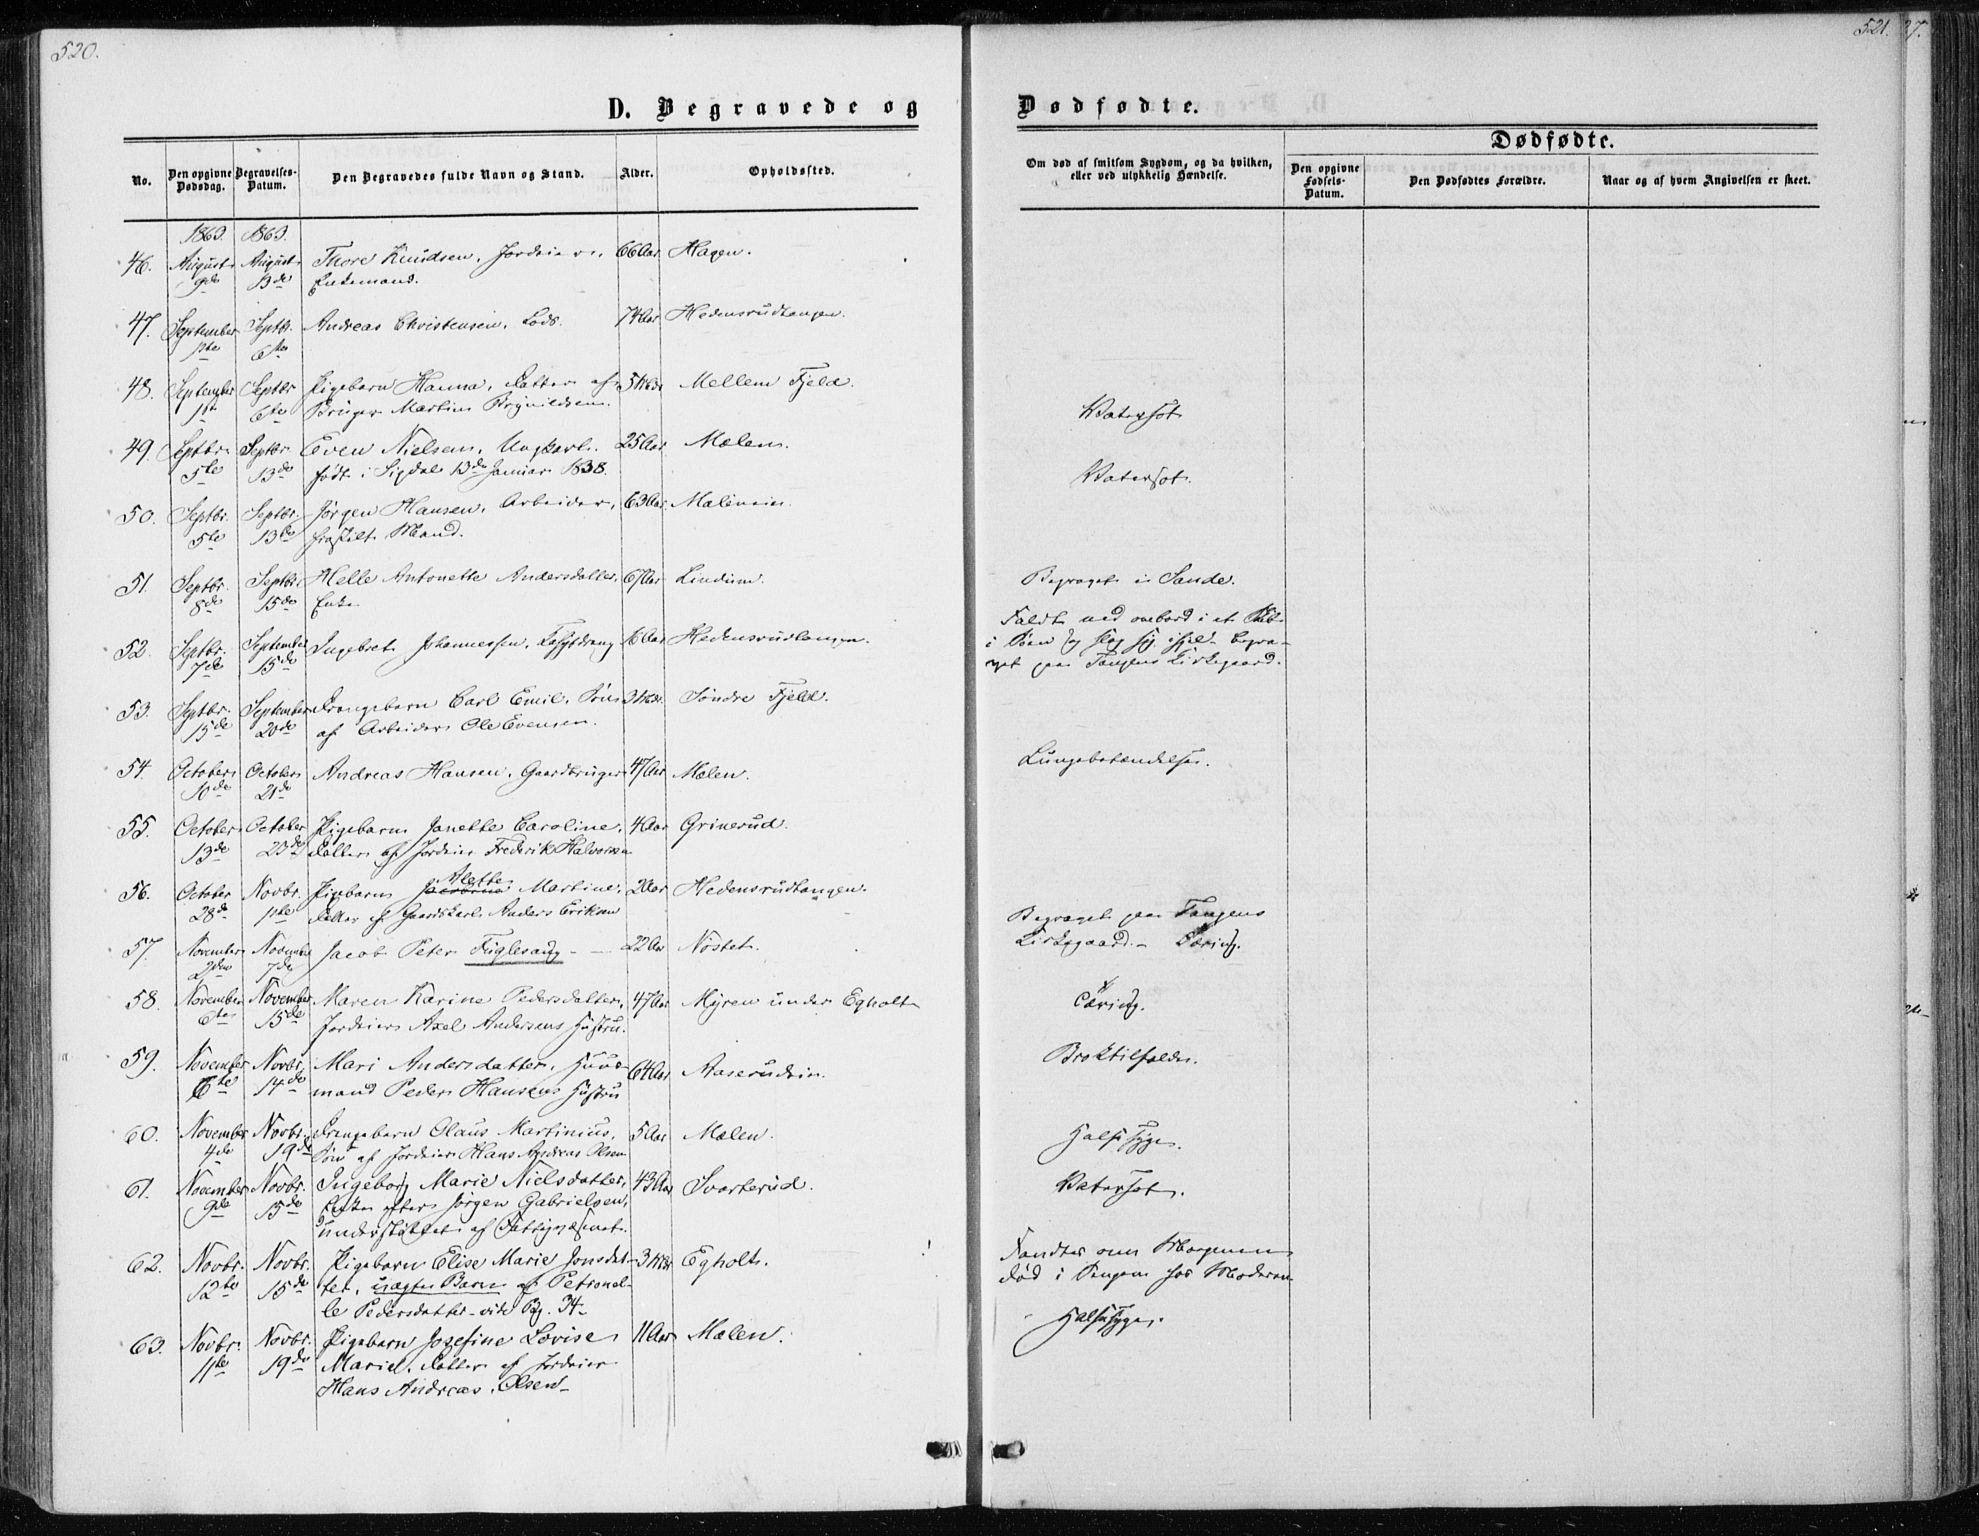 520.
D. Begravede og
No.
Den opgivne Dødsdag.
Begravelses-Datum.
Den Begravedes fulde Navn og Stand.
Alder.
Opholdssted.
1863. 1863.
46. August August Thore Knudsen, Jordeier, 66 Aar Hagen.
9de 13de Enkemand.
47. September Septbr. Andreas Christensen, Lods. 74 Aar Hedensrudtangen.
1ste 6te
48. September Septbr Pigebarn Hanna, Datter af Mellem Fjeld.
1st 6te Bruger Martin Brynildsen.
49. Septbr. Septbr. Even Nielsen, Ungkarl. 25 Aar Mælen.
5te 13de født i Sigdal 13de Januar 1838.
50. Septbr. Septbr. Jørgen Hansen, Arbeider, 63 Aar
5te 13de fraskilt Mand.
51. Septbr. Septbr. Helle Antonette Andersdatter, 67 Aar Lindum.
8de 15de Enke
52. Septbr. September Ingebret Johannessen, 16 Aar Hedensrudtangen.
7de 15de
53. Septbr. September Drengebarn Carl Emil, Søn Søndre Fjeld.
15de 20de af Arbeider Ole Evensen.
54. October October Andreas Hansen, Gaardbruger 47 Aar Mælen.
10de 21de
55. October October Pigebarn Janette Caroline, 4 Aar Grinerud.
13de 23de Datter af Jordeier Frederik Halvorsen
Alette
56. October Novbr. Pigebarn Martine, 2 Aar Hedensrudtangen.
28de 1ste Datter af Gaardskarl Anders Eriksen
57. November November Jacob Peter Fuglesang 22 Aar Nøstet.
2den 7de
58. November November Maren Karine Pedersdatter, 47 Aar Myren under Egholt
6te 15de Jordeier Axel Andersens Hustru.
59. November Novbr. Mari Andersdatter, Huus- 64 Aar Aaserudein.
6te 14de mand Peder Hansens Hustru
60. November Novbr. Drengebarn Olaus Martinius, 5 Aar Mælen.
4de 19de Søn af Jordeier Hans Andreas Olsen
61. November Novbr. Ingeborg Marie Nielsdatter, 43 Aar Svarterud.
9de 15de Enke efter Jørgen Gabrielsen,
understøttet af Fattigvæsenet.
62. Novbr. Novbr. Pigebarn Elise Marie Jonsdat- Egholt.
12te 15de ter, uægte Barn af Petronel-
le Pedersdatter - vide Pg. 34
63. Novbr. Novbr. Pigebarn Josefine Lovise 11 Aar Mælen.
11te 19de Marie, Datter af Jordeier
Hans Andreas Olsen
521.
27.
Dødfødte.
Om død af smitsom Sygdom, og da hvilken, eller ved ulykkelig Hændelse.
Dødfødte.
Den opgivne Fødsels-Datum.
Den Dødfødtes Forældre.
Naar og af hvem Angivelsen er skeet.
Vatersot
Vatersot.
Begravet i Sande.
Faldt ned ombord i et Skib
i Søen og slog sig ihjel. Begra-
vet paa Tangens Kirkegaard.
Lungebetændelse.
Begravet paa Tangens
Kirkegaard. - Tæring.
Tæring.
Broktilfælde.
Halssyge.
Vatersot.
Fandtes om Morgenen
død i Sengen hos Moderen
Halssyge.